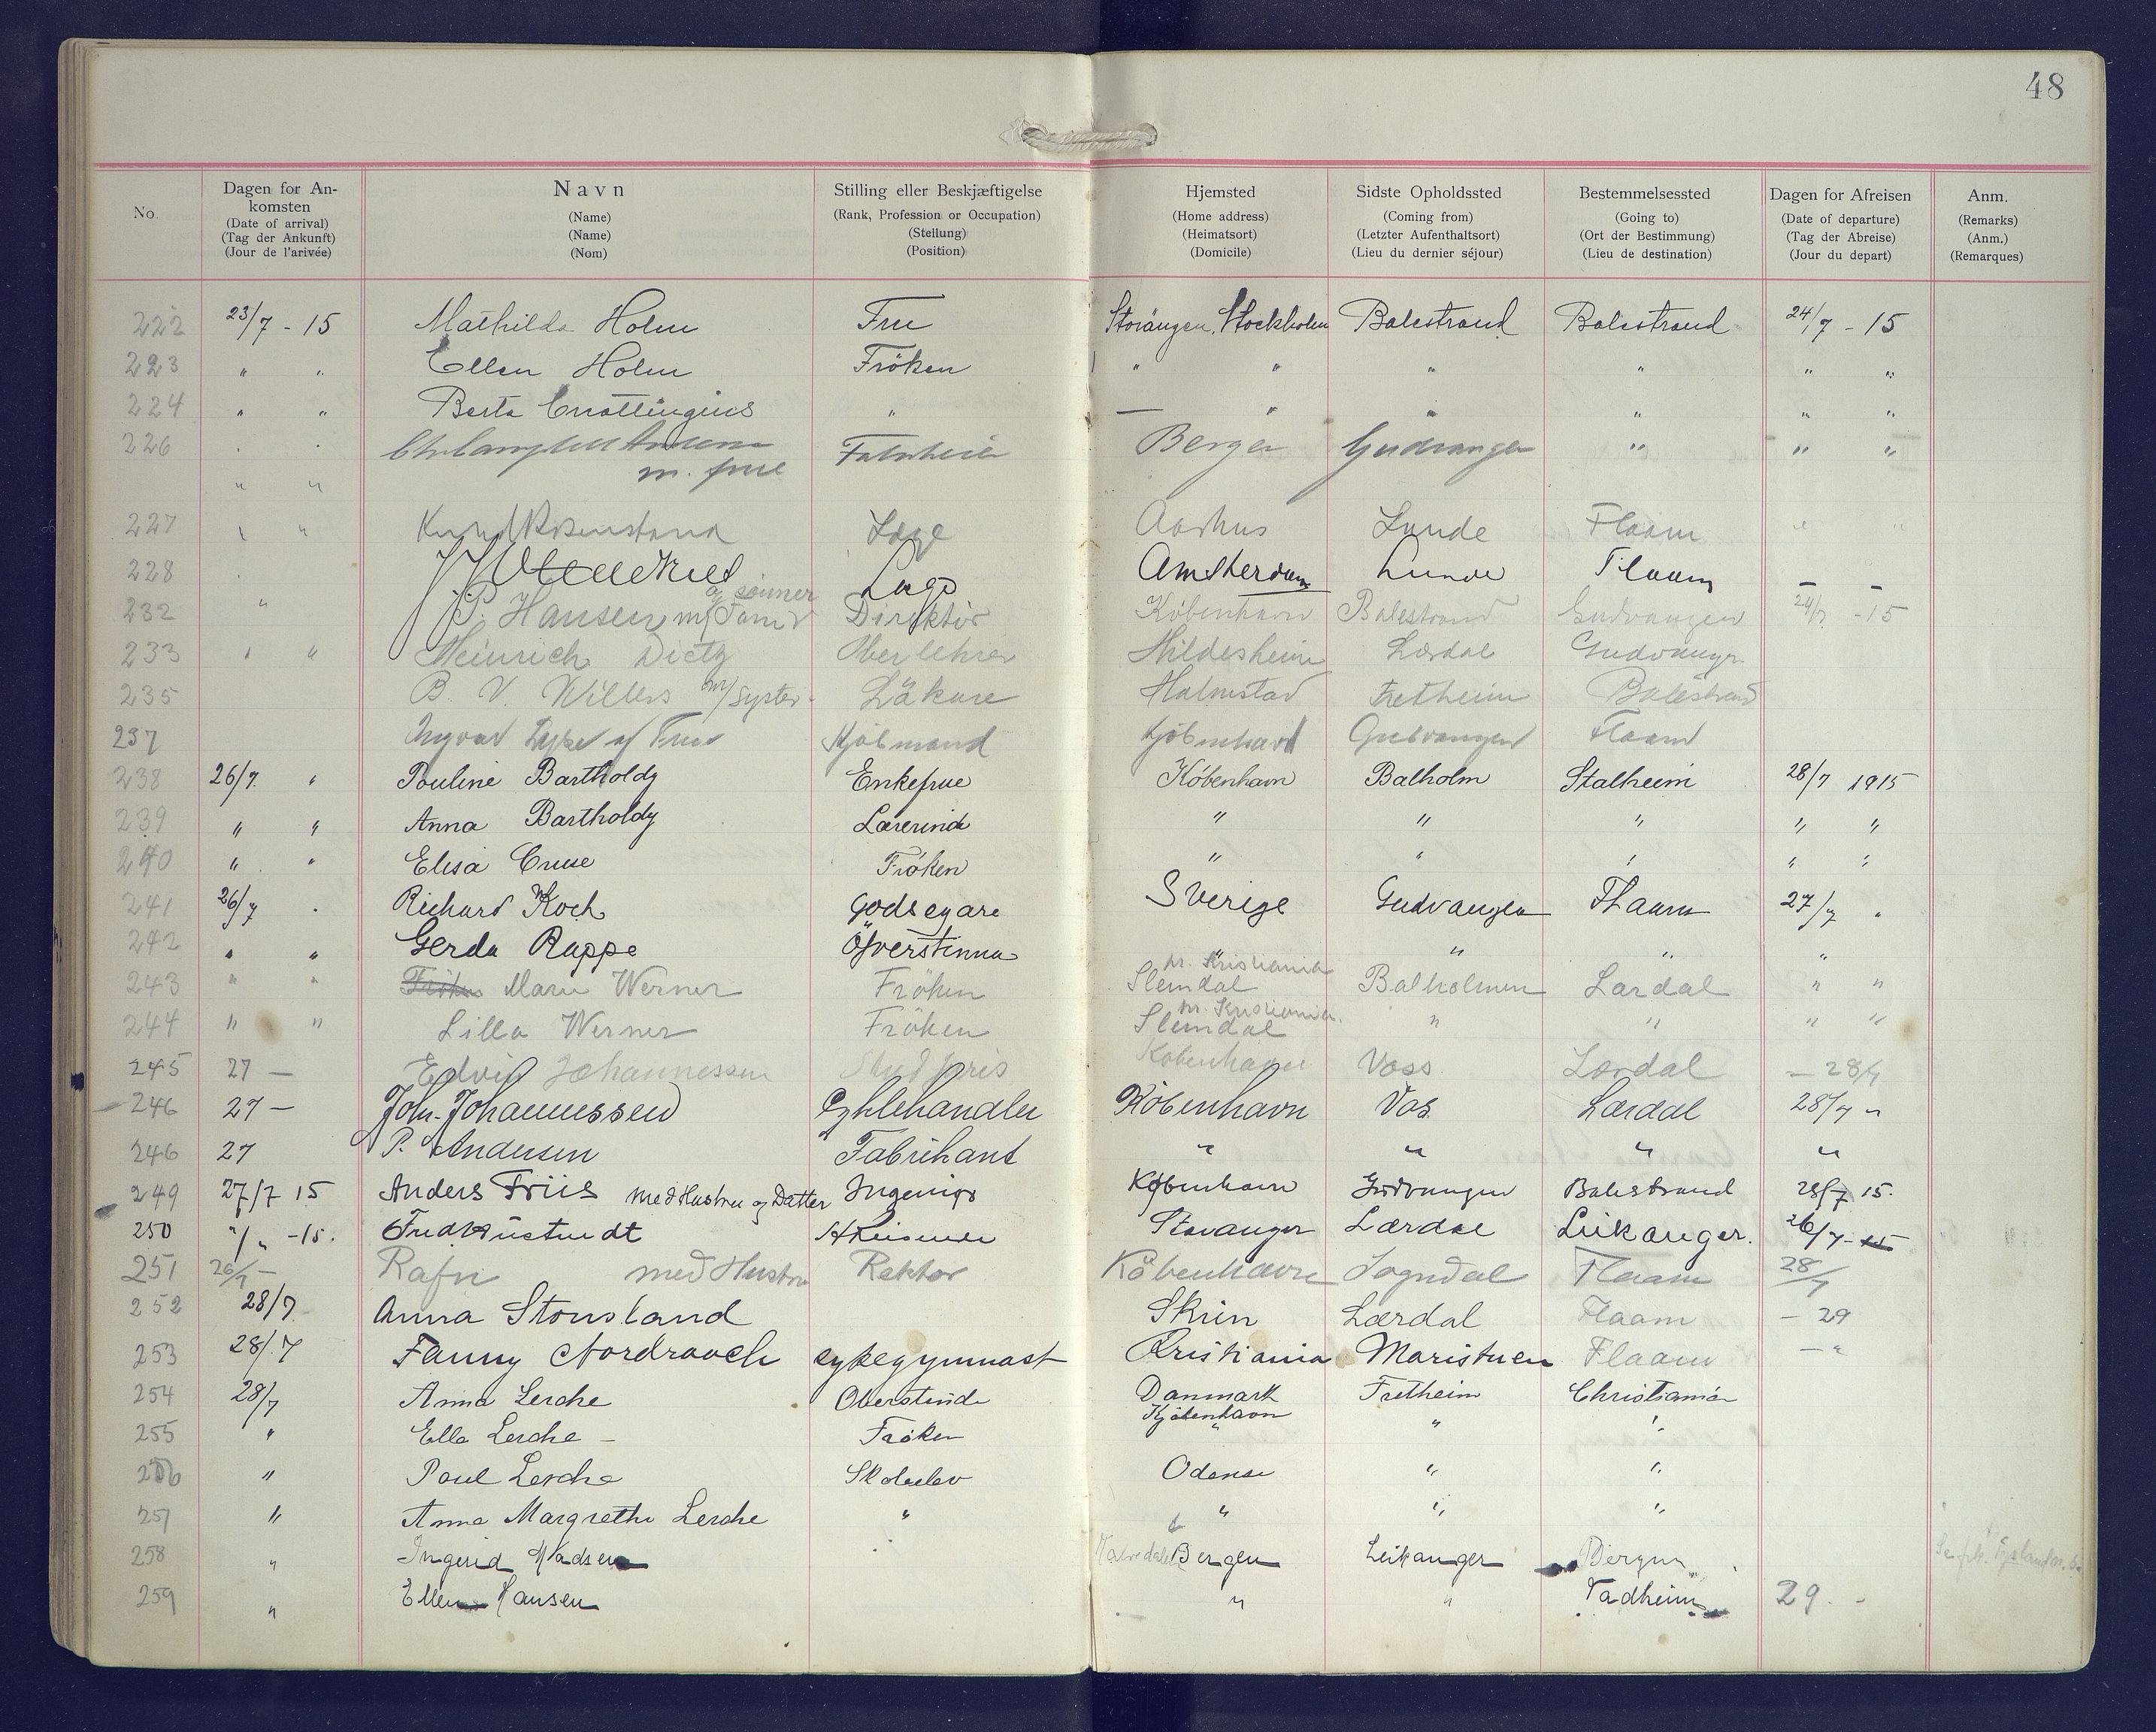 48
No.
Dagen for An-
komsten
(Date of arrival)
(Tag der Ankunft)
(Jour de l'arivée)
Navn
(Name)
(Name)
(Nom)
Stilling eller Beskjæftigelse
(Rank, Profession or Occupation)
(Stellung)
(Position)
Hjemsted
(Home address)
(Heimatsort)
(Domicile)
Sidste Opholdssted
(Coming from)
(Letzter Aufenthaltsort)
(Lieu du dernier séjour)
Bestemmelsessted
(Going to)
(Ort der Bestimmung)
(Lieu de destination)
Dagen for Afreisen
(Date of departure)
(Tag der Abreise)
(Jour du depart)
Anm.
(Remarks)
(Anm.)
(Remarques)
222 23/7 - 15 Mathilda Holm Fru Storängen, Stockholm Balestrand Balestrand 24/7 - 15
223 " " Ellen Holm Fröken " " " " " "
224 " " Berta Cnattingius " — " " " " "
226 Bergen Gudvangen " " "
" " m. frue
227 " " Knud Rosenstand Læge Aarhus Lunde Flaam " "
228 Amsterdam Lunde Flaam – –
og sønner
232 " P. Hansen m/ Fam. Direktör København Balestrand Gudvangen 24/7 - 15
233 " " Heinrich Dietz Oberlehrer Hildesheim Lærdal Gudvangen
235 B. V. Willers m/ syster Läkare Halmstad Fretheim Balestrand
237 Ingvar Kjøbmand Kjøbenhavn Gudvangen Flaam
238 26/7. " Pouline Bartholdy Enkefrue København Balholm Stalheim 28/7 1915
239 " " Anna Bartholdy Lærerinde " " " " "
240 " " Elisa Cruse Frøken " " " " "
241 26/7 . Richard Koch godsegare Sverige Gudvangen Flaam 27/7 "
242 " " Gerda Rappe Öfverstinna " " " "
nr. Kristiania
243 " " Marie Werner Fröken Slemdal Balholmen Lærdal " "
nr. Kristiania.
244 " " Lilla Werner Fröken Slemdal " " " "
245 27 — Edvin Johannessen Stud juris København Voss Lærdal – 28/7
246 27 — Joh. Johannessen Cyklehandler København Vos Lærdal 28/7 "
246 27 P. Andersen Fabrikant " " " "
249 27/7 15 Anders Friis med Hustru og Datter Ingeniør København Gudvangen Balestrand 28/7 15.
250 "/" -15. Stavanger Lærdal Leikanger. 26/7-15
251 26/7 – Rafn med Hustru Rektor København Sogndal Flaam 28/7
252 28/7 Anna Stousland Skien Lærdal Flaam – 29
253 28/7 Fanny Nordraach sykegymnast Kristiania Maristuen Flaam – "
254 28/7 Anna Lerche Oberstinde Danmark Fretheim Christiania
Kjøbenhavn
255 " Ella Lerche – Frøken " " "
256 " Poul Lerche Skoleelev Odense " "
257 " Anna Margrethe Lerche " " " "
258 " Ingerid Madsen Bergen Leikanger Bergen
259 " Ellen Hansen " " Vadheim 29. -